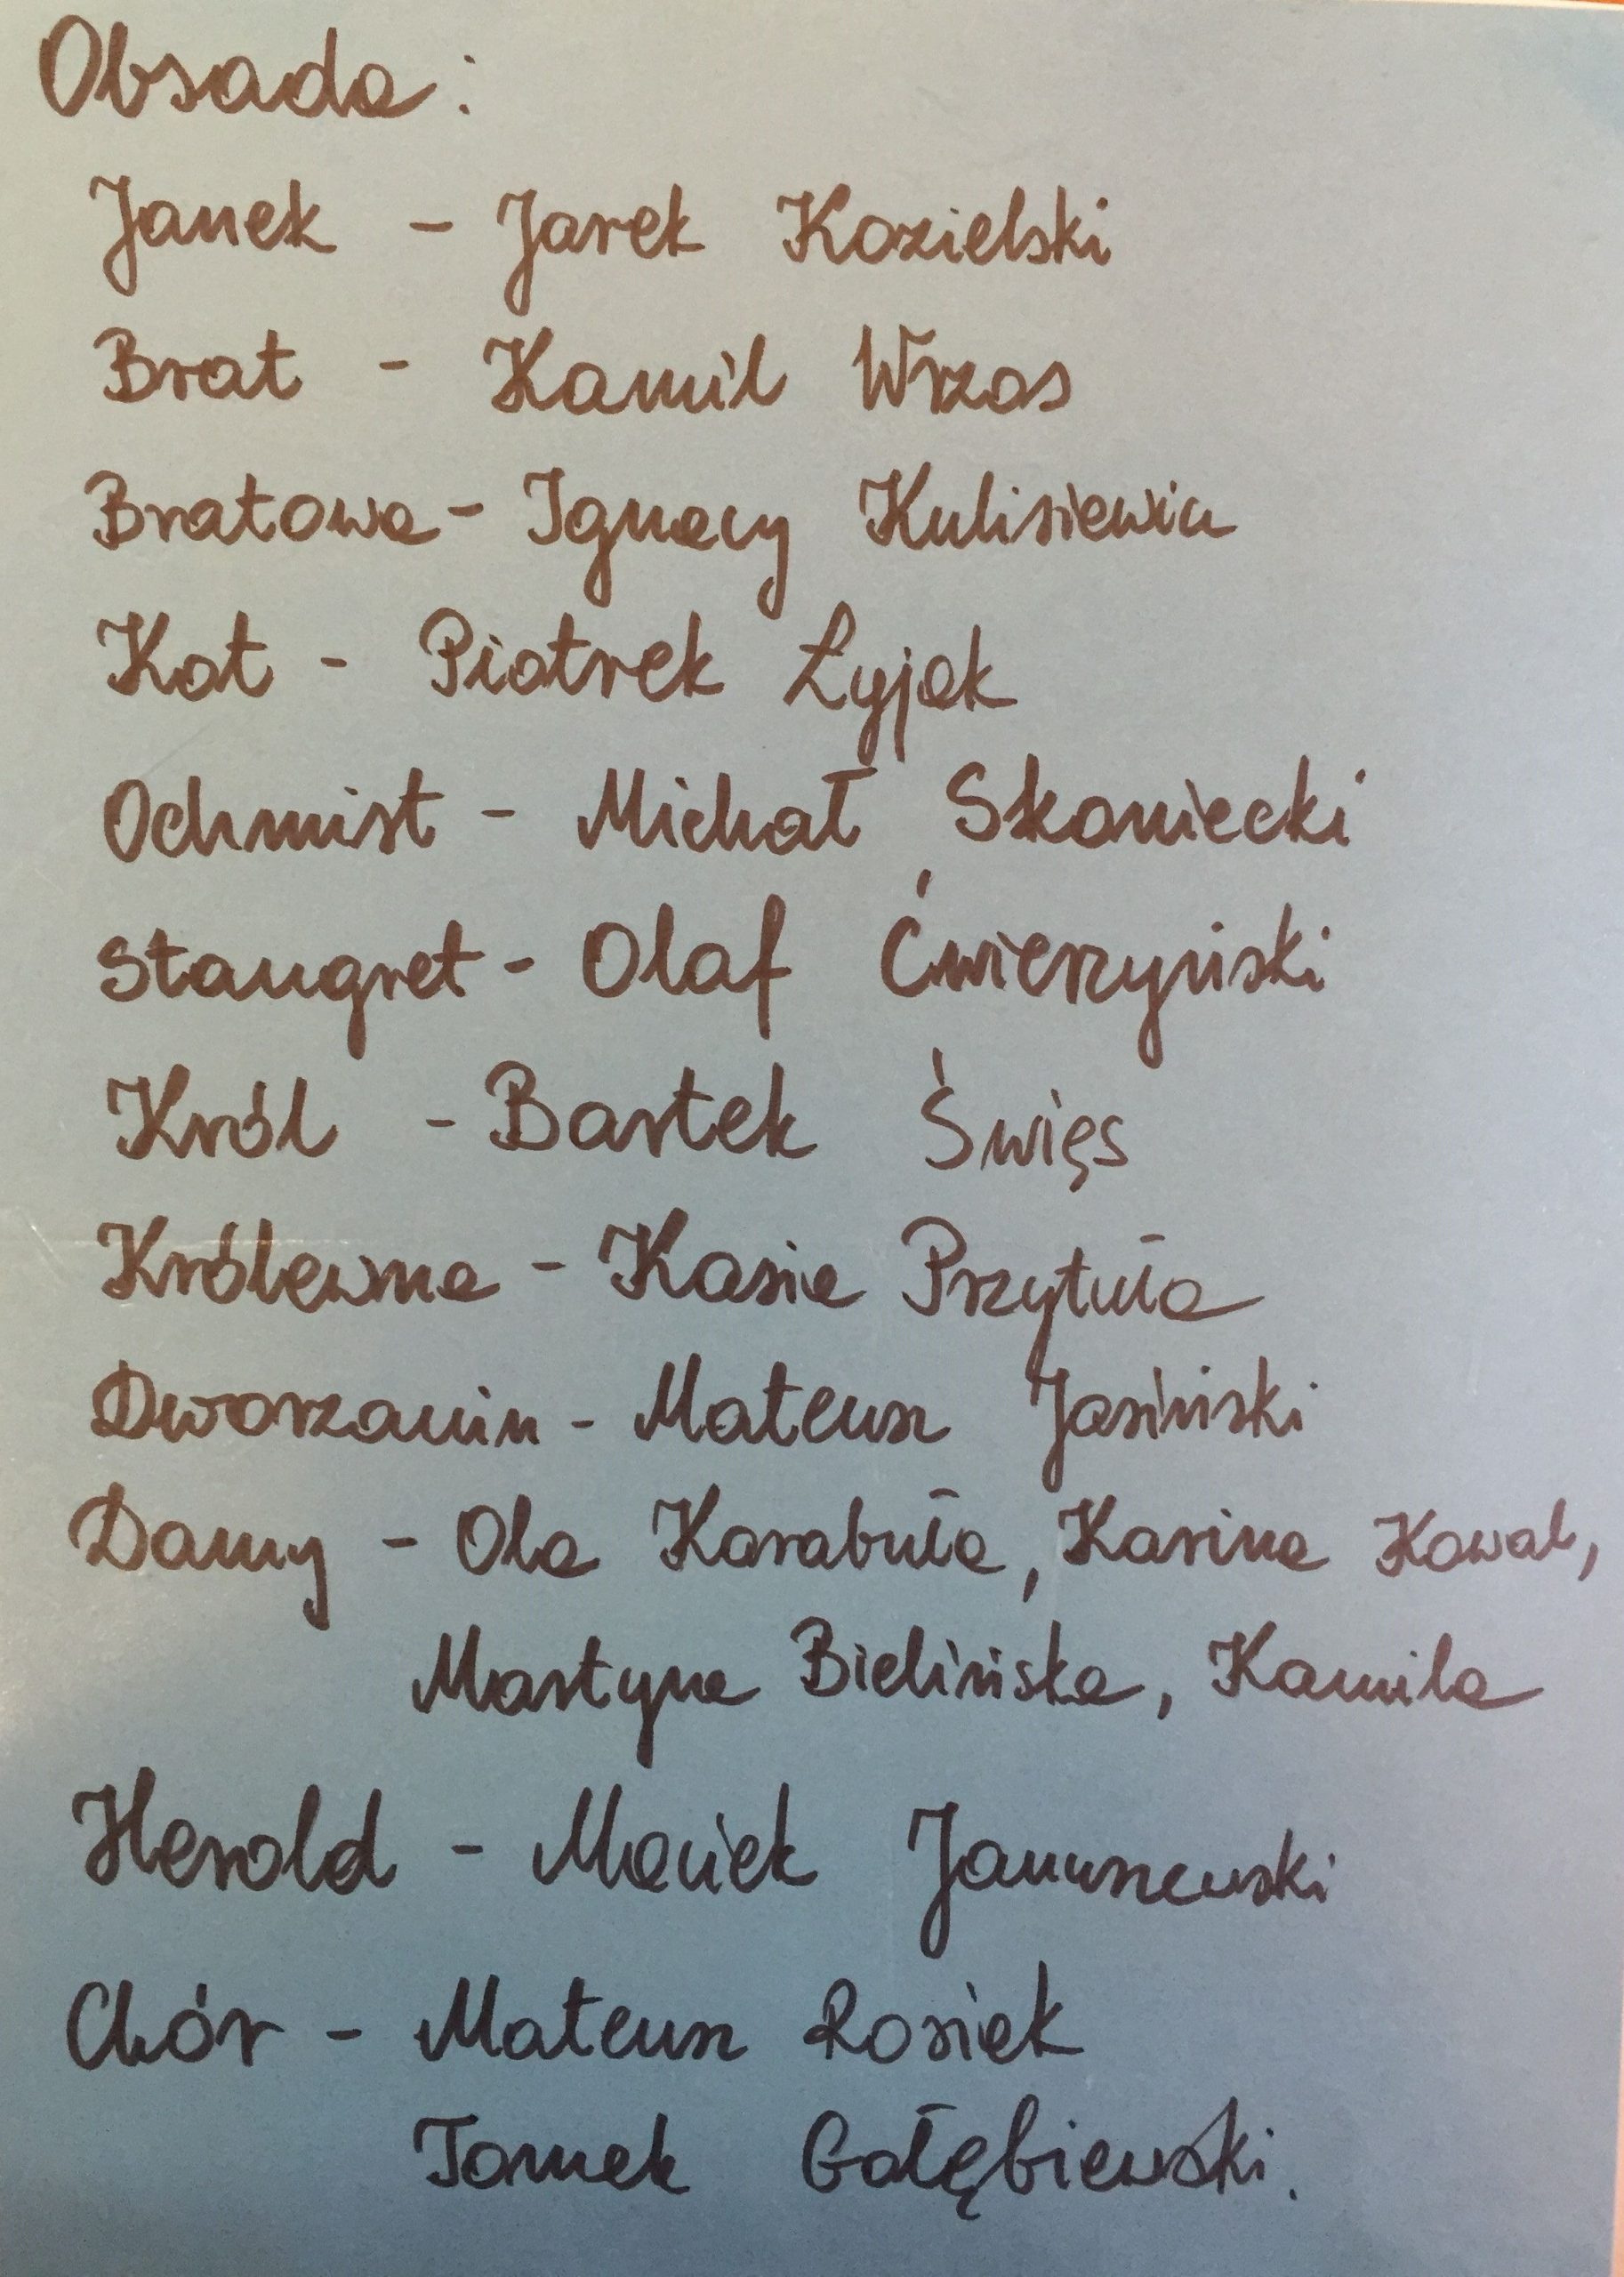 Obsada:
Janek - Jarek Kozielski
Brat - Kamil Wrzos
Bratowa - Ignacy Kulisiewicz
Kot - Piotrek Łyjak
Ochmist - Michał Skoniecki
Stangret - Olaf Ćwierzyński
Król - Bartek Święs
Królewna - Kasia Przytuła
Dworzanin - Mateusz Jasiński
Damy - Ola Karabuła, Karina Kowal,
Martyna Bielińska, Kamila
Herold - Maciek Januszewski
Chór - Mateusz Rosiek
Tomek Gołębiewski.